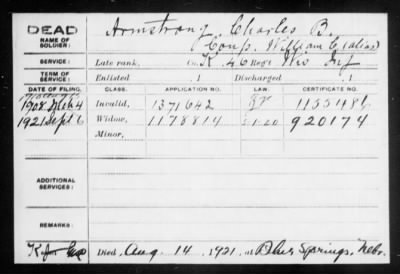 DEAD
NAME OF SOLDIER: Armstrong, Charles B.
Corp, William C (alias)
SERVICE: Late rank, Co. K, 46 Reg't Wis Inf
TERM OF SERVICE: Enlisted , 1 Discharged , 1
DATE OF FILING. CLASS. APPLICATION NO. LAW. CERTIFICATE NO.
1908 4 Invalid, 1371642 1155486
1921 Sept 6 Widow, 1178814 5-1-20 920174
Minor,
ADDITIONAL SERVICES:
Died Aug 14, 1921, at Blue Springs, Nebr.